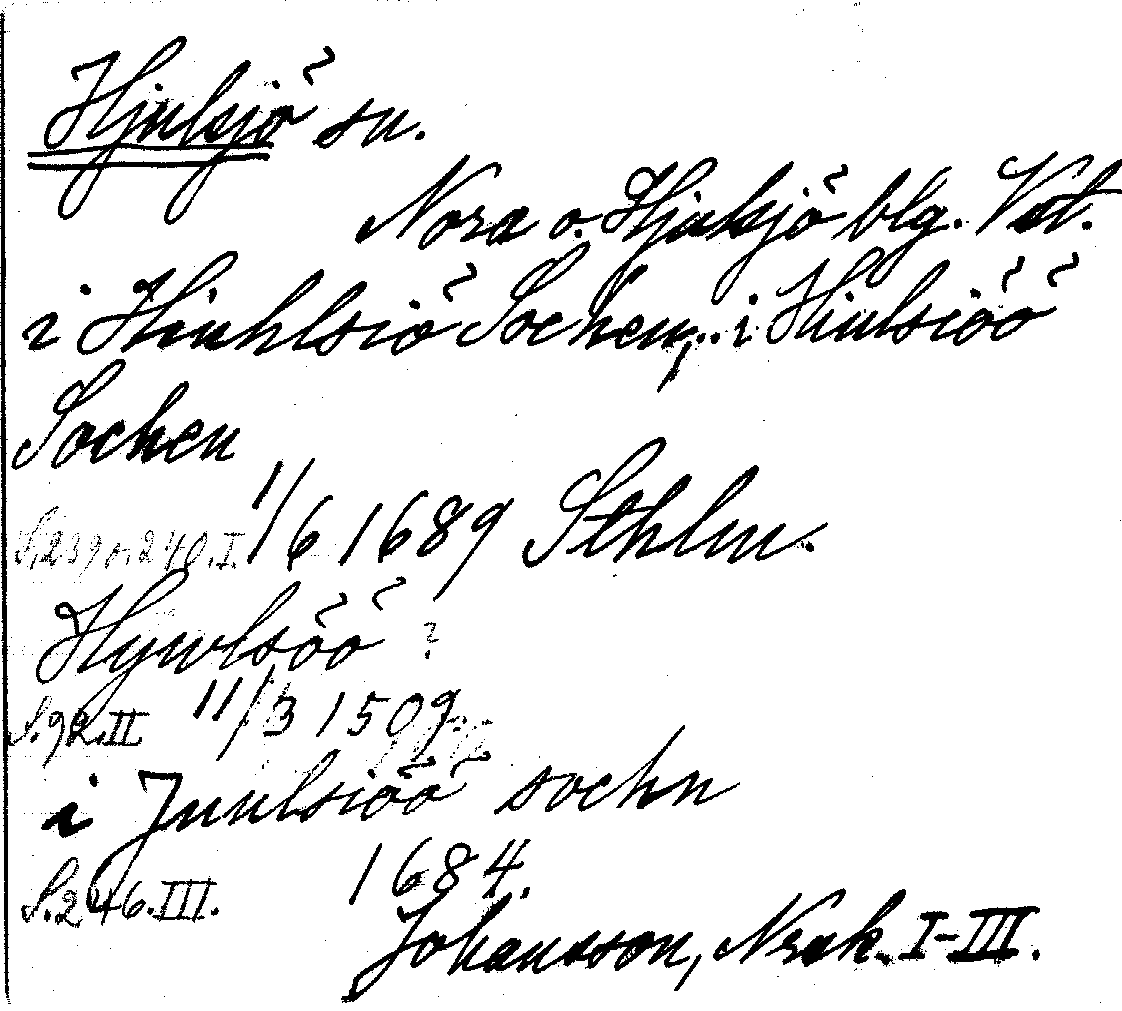 Hjulsjö sn.
Nora o. Hjulsjö blg. Vstl.
i Hiuhlsiö Sochen, i Hiulsiöö
Sochen
S. 239 o. 240. I. 1/6 1689 Sthlm.
Hywlsöö ?
S. 92. II 11/3 1509.
i Juulsiöö sochn
S. 246. III. 1684.
Johansson, Nrak. I-III.